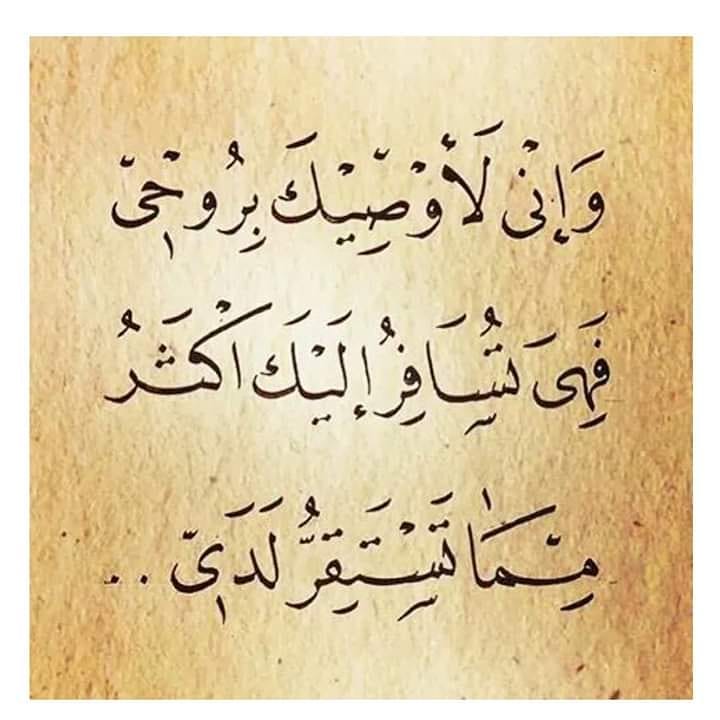 وَإِنْى لَأَوْصِّيْكَ بِرُوحْىّ
فَهِىَ تُسَافِرُ إِلَيْكَ اكْثَرُ
مِمَّا تَسْتَقِرُّ لَدَىّ ..